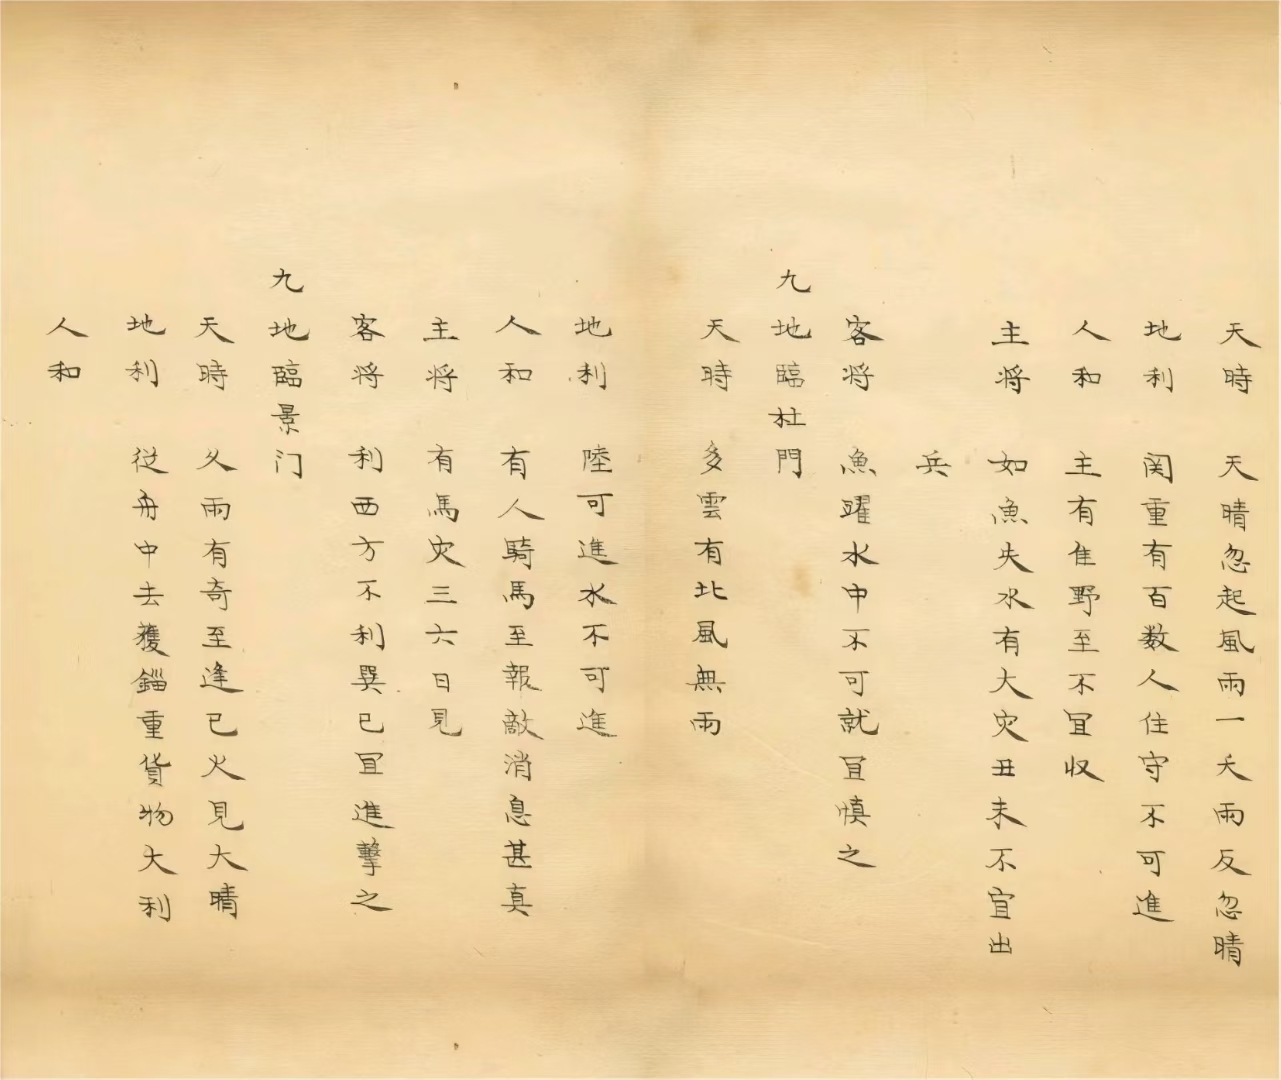 天時　天晴忽起風雨一天雨反忽晴
地利　関重有百数人住守不可進
人和　主有隹野至不冝収
主将　如魚失水有大灾丑未不宜出
兵
客将　魚躍水中不可就冝慎之
九地臨杜門
天時　多雲有北風無雨
地利　陸可進水不可進
人和　有人騎馬至報敵消息甚真
主将　有馬灾三六日見
客将　利西方不利巽巳冝進擊之
九地臨景门
天時　久雨有奇至逢巳火見大晴
地利　從舟中去獲錙重貨物大利
人和